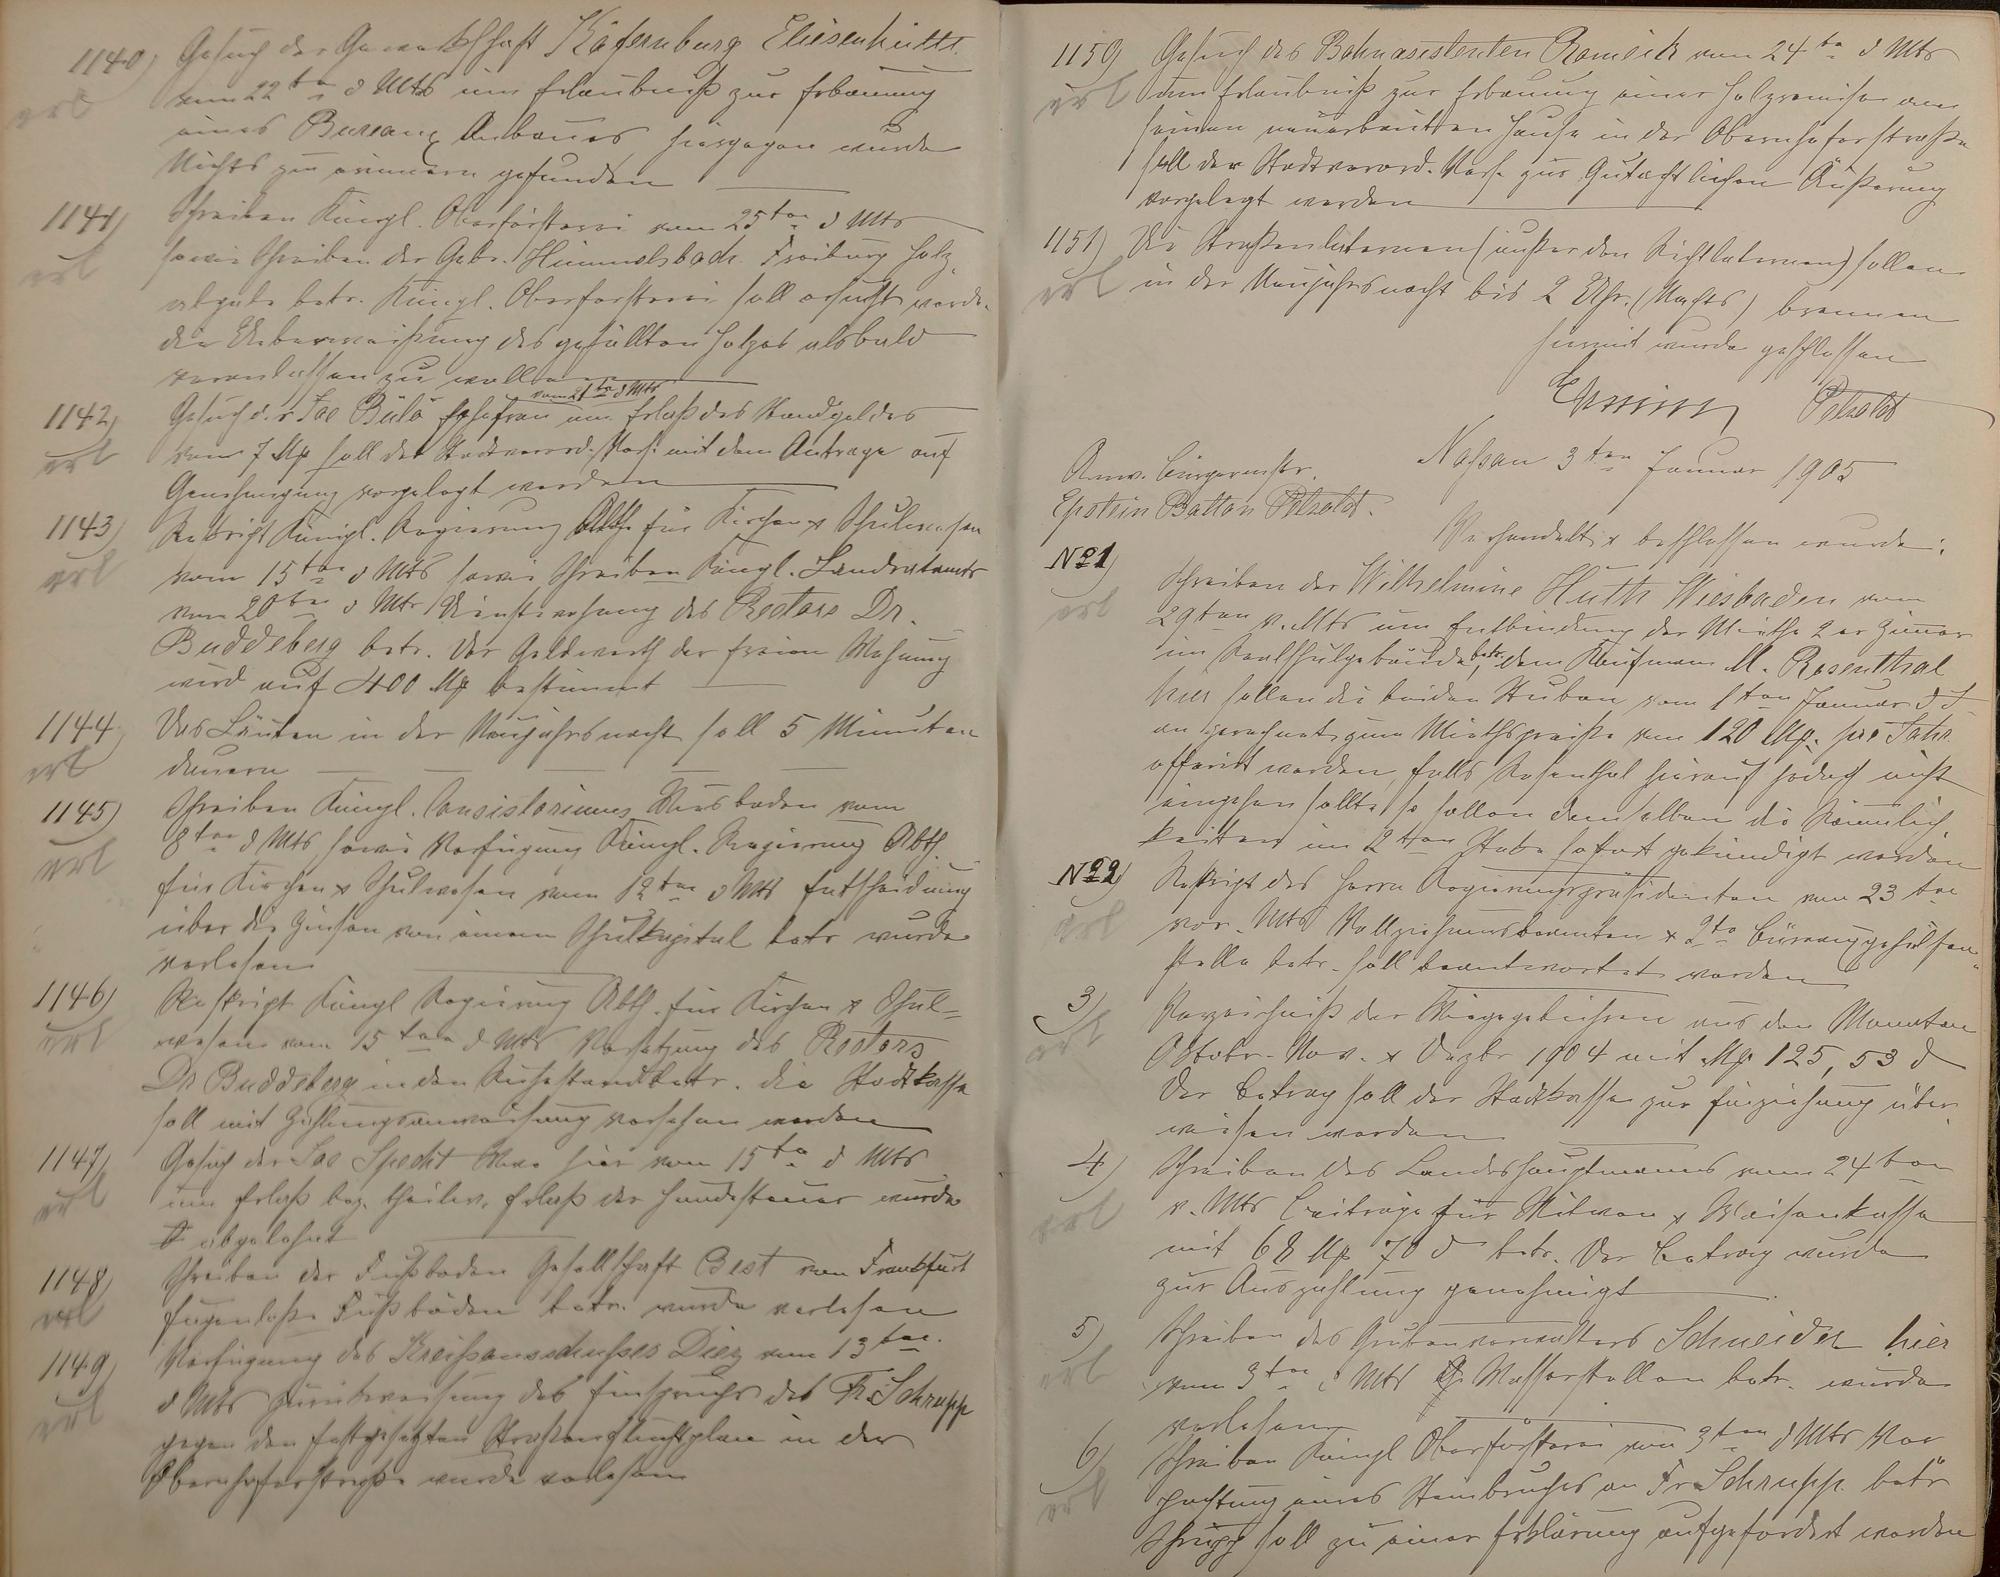 1140) Gesuch der Gewerkschaft Käfernburg Elisenhütte
erl vom 22ten d Mts um Erlaubniß zur Erbauung
eines Bureaux Anbaues, hiergegen wurde
Nichts zu erinnern gefunden
1141) Schreiben Königl. Oberförsterei vom 25ten d Mts
erl sowie Schreiben der Gebr. Himmelsbach Freiburg Holz-
abgabe betr. Königl. Oberförsterei soll ersucht werde.
die Ueberweißung des gefällten Holzes alsbald
veranlassen zu wollen
vom 21ten d Mts
1142) Gesuch der Jac Bülo Ehefrau um Erlaß des Standgeldes
erl von 7 M soll der Stadtverord. Vers. mit dem Antrage auf
Genehmigung vorgelegt werden
1143) Reskript Königl. Regierung Abth. für Kirchen & Schulwesen
erl vom 15ten d Mts sowie Schreiben Königl. Landratamts
vom 20ten d Mts Dienstwohnung des Rectors Dr.
Buddeberg betr. Der Geldwerth der freien Wohnung
wird auf 400 M bestimmt
1144. Das Läuten in der Neujahrsnacht soll 5 Minuten
erl dauern
1145) Schreiben Königl. Consistoriums Wiesbaden vom
erl 8ten d Mts sowie Verfügung Königl. Regierung Abth.
für Kirchen & Schulwesen vom 12ten d Mts Entscheidung
über die Zinsen von einem Schulkapital betr wurde
verlesen
1146) Reskript Königl Regierung Abth. für Kirchen & Schul-
erl wesen vom 15ten d Mts Versetzung des Rectors
Dr Buddeberg in den Ruhestand betr. die Stadtkasse
soll mit Zahlungsanweisung versehen werden
1147) Gesuch der Jac Specht Wwe hier vom 15ten d Mts
erl um Erlaß bez. theilw. Erlaß der Hundesteuer wurde
abgelehnt
1148) Schreiben der Fußboden Gesellschaft Best von Frankfurt
erl fugenlose Fußböden betr. wurde verlesen
1149) Verfügung des Kreißausschußes Diez vom 13ten
erl d Mts Zurückweisung des Einspruchs des Fr. Schrupp
gegen den festgesetzten Straßenfluchtplan in der
Obernhoferstraße wurde verlesen
1150) Gesuch des Bahnasistenten Rameik vom 24ten d Mts
erl um Erlaubniß zur Erbauung einer Holzremise an
seinem neuerbauten Hause in der Obernhoferstraße
soll der Stadtverord. Vers. zur Gutachtlichen Äußerung
vorgelegt werden
1151) Die Straßenlaternen (außer den Richtlaternen) sollen
erl in der Neujahrsnacht bis 2 Uhr. (Nachts) brennen
hiermit wurde geschlossen
Petzoldt
Nassau 3ten Januar 1905
Anw. Bürgermstr.
Epstein Balton Petzoldt.
Verhandelt & beschlossen wurde:
No 1) Schreiben der Wilhelmine Huth Wiesbaden vom
erl 29ten v. Mts um Entbindung der Miethe 2er Zimmer
im Realschulgebäude, betr. dem Kaufmann M. Rosenthal
hier sollen die beiden Stuben vom 1ten Januar d J
an gerechnet zum Miethspreiße von 120 M. pro Jahr
offerirt werden, falls Rosenthal hierauf jedoch nicht
eingehen sollte so sollen demselben die Räumlich
keiten im 2ten Stocke sofort gekündigt werden
No 2) Reskript des Herrn Regierungspräsidenten vom 23ten
erl vor. Mts Vollziehunsbeamten & 2te Büreaugehülfen-
stelle betr. soll beantwortet werden
3) Verzeichniß der Wiegegebühren aus den Monaten
erl Oktobr. Nov. & Dezbr 1904 mit M 125,53 d
Der Betrag soll der Stadtkasse zur Einziehung über
wiesen werden
4) Schreiben des Landeshauptmanns vom 24ten
erl v. Mts Beiträge für Witwen & Waisenkasse
mit 68 M 70 d betr. Der Betrag wurde
zur Auszahlung genehmigt
5) Schreiben des Grubenverwalters Schneider hier
erl vom 3ten d Mts Wasserstollen betr. wurde
verlesen
6) Schreiben Königl Oberförsterei vom 3ten d Mts Ver
erl pachtung eines Steinbruches an Fr Schrupp betr
Schrupp soll zu einer Erklärung aufgefordert werden